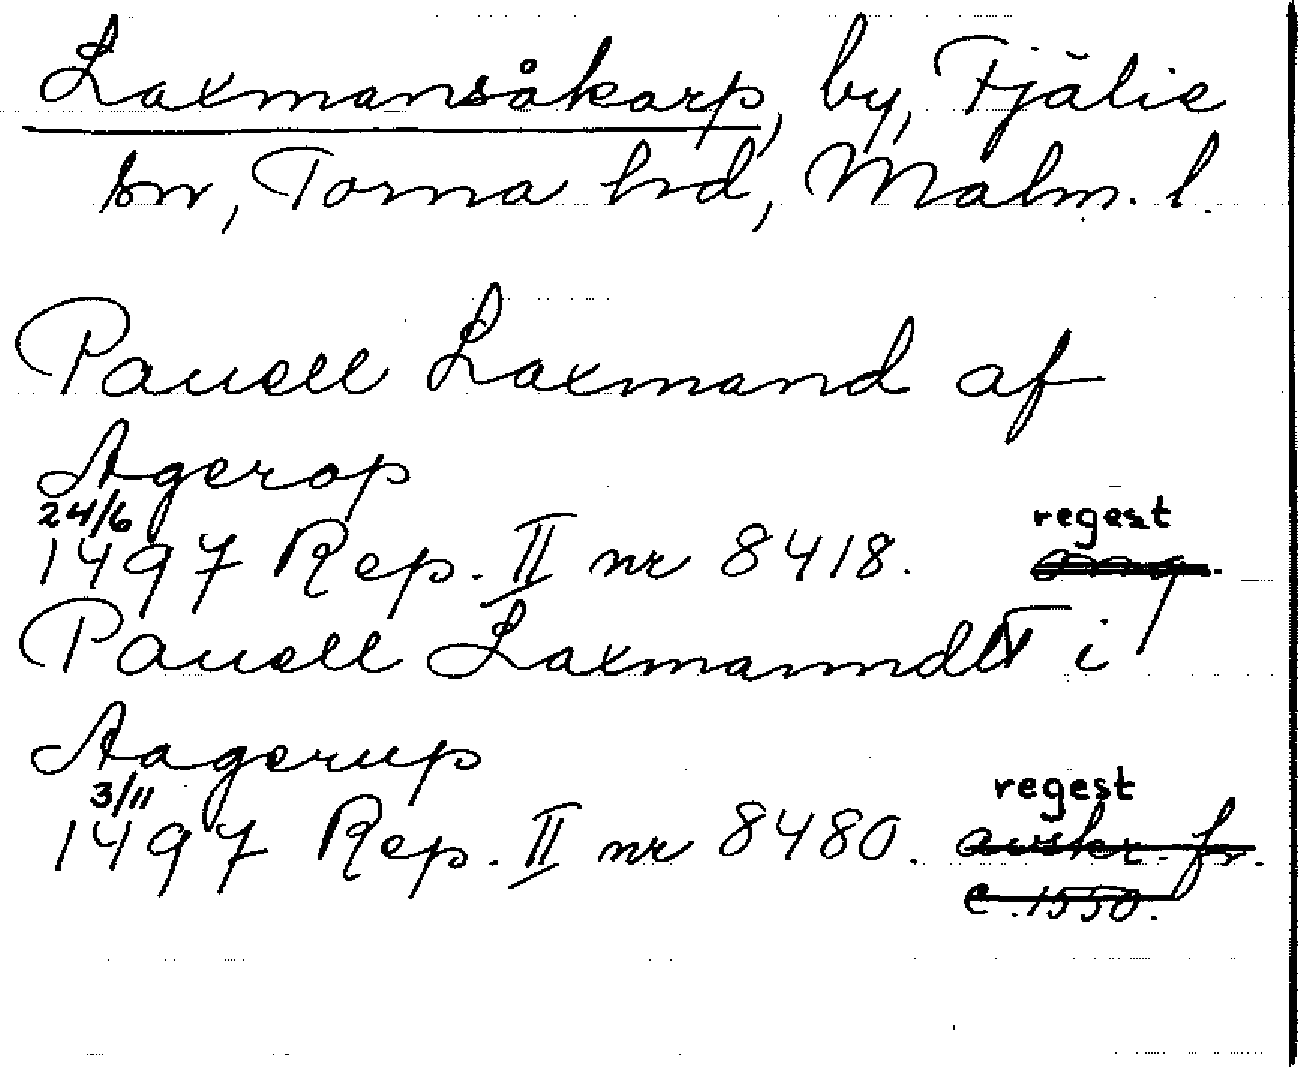 Laxmansåkarp, by, Fjälie
sn, Torna hd, Malm. l.
Pauell Laxmand af
Agerop
24/6
1497 Rep. II nr 8418. regest
orig.
Pauell Laxmanndt i
Aagerup
3/11
1497 Rep. II nr 8480. regest
avskr. fr.
c. 1550.